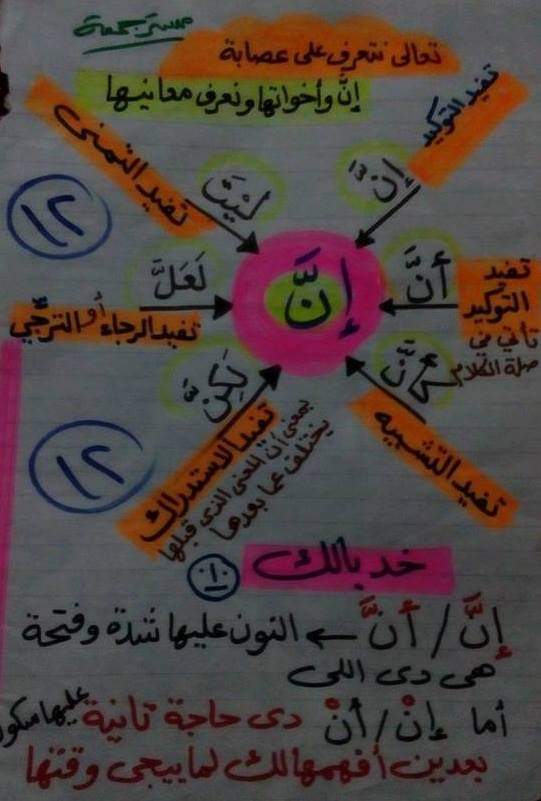 مستر جمعة
تعالى نتعرف على عصابة
إنَّ وأخواتها ونعرف معانيها
تفيد التوكيد
إنَّ
تفيد التمنى
لَيْتَ
١٢
إنَّ
أنَّ
تفيد
التوكيد
تأتي في
صلة الكلام
لَعَلَّ
تفيد الرجاء أو الترجّي
كأنَّ
تفيد التشبيه
لكِنَّ
تفيد الاستدراك
بمعنى أن المعنى الذى قبلها
يختلف عما بعدها
١٢
خد بالك
إنَّ / أنَّ ← النون عليها شدة وفتحة
هى دى اللى
أما إنْ / أنْ دى حاجة تانية عليها سكون
بعدين أفهمهالك لما ييجى وقتها